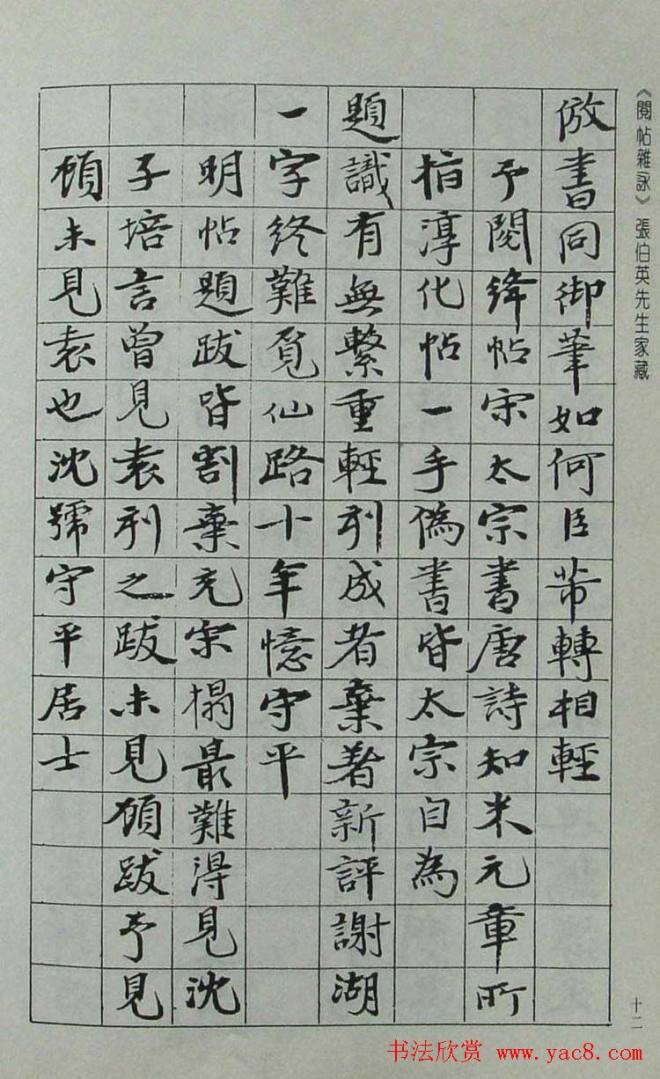 《閱帖雜詠》 張伯英先生家藏
倣書同御筆如何臣芾轉相輕
予閱絳帖宋太宗書唐詩知米元章所
指淳化帖一手偽書皆太宗自為
題識有無繫重輕刊成者棄著新評謝湖
一字終難覓仙路十年憶守平
明帖題跋皆割棄充宋搨最難得見沈
子培言曾見袁刊之跋未見顧跋予見
顧未見袁也沈號守平居士
十二
书法欣赏 www.yac8.com